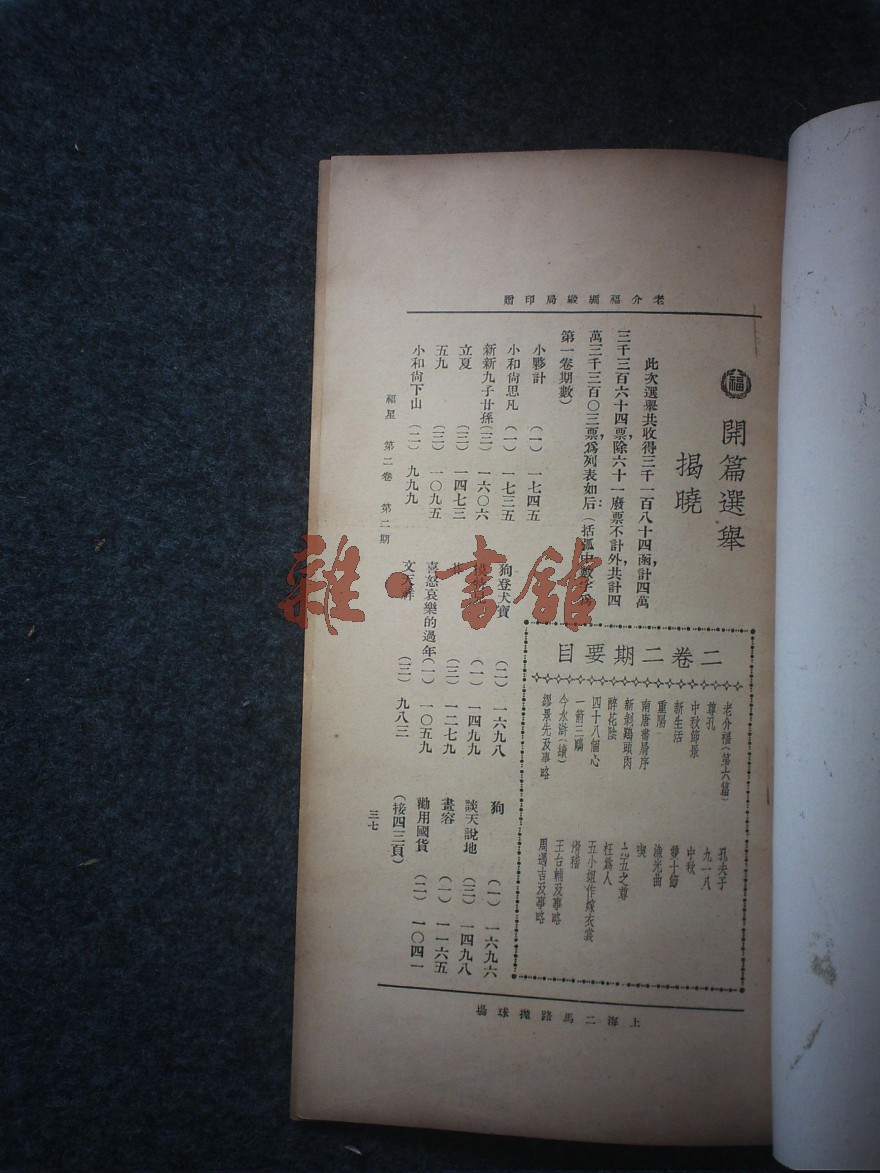 老介福綢緞局印贈
福
開篇選舉
揭曉
此次選舉共收得三千一百八十四函,計四萬
三千三百六十四票,除六十一廢票不計外,共計四
萬三千三百〇三票,爲列表如后:(括弧中數字爲
第一卷期數)
小夥計 (一) 一七四五
小和尙思凡 (一) 一七三五
新新九子廿孫 (三) 一六〇六
立夏 (三) 一四七三
五九 (三) 一〇九五
小和尙下山 (二) 九九九
狗登犬寶 (二) 一六九八
(一) 一四九九
(三) 一二七九
喜怒哀樂的過年 (一) 一〇五九
文天祥 (三) 九八三
狗 (一) 一六九六
談天說地 (三) 一四九八
畫容 (一) 一一六五
勸用國貨 (二) 一〇四一
(接四三頁)
二卷二期要目
老介福(第六篇)
尊孔
中秋節景
新生活
重陽
南唐書房序
新剝鷄頭肉
醉花陰
四十八個心
一箭三鵰
今水滸(續)
繆景先及事略
孔夫子
九一八
中秋
雙十節
漁光曲
喫
九五之尊
枉爲人
五小姐作嫁衣裳
滑稽
王台輔及事略
周遇吉及事略
福星 第二卷 第二期
三七
上海二馬路拋球場
雜·書館